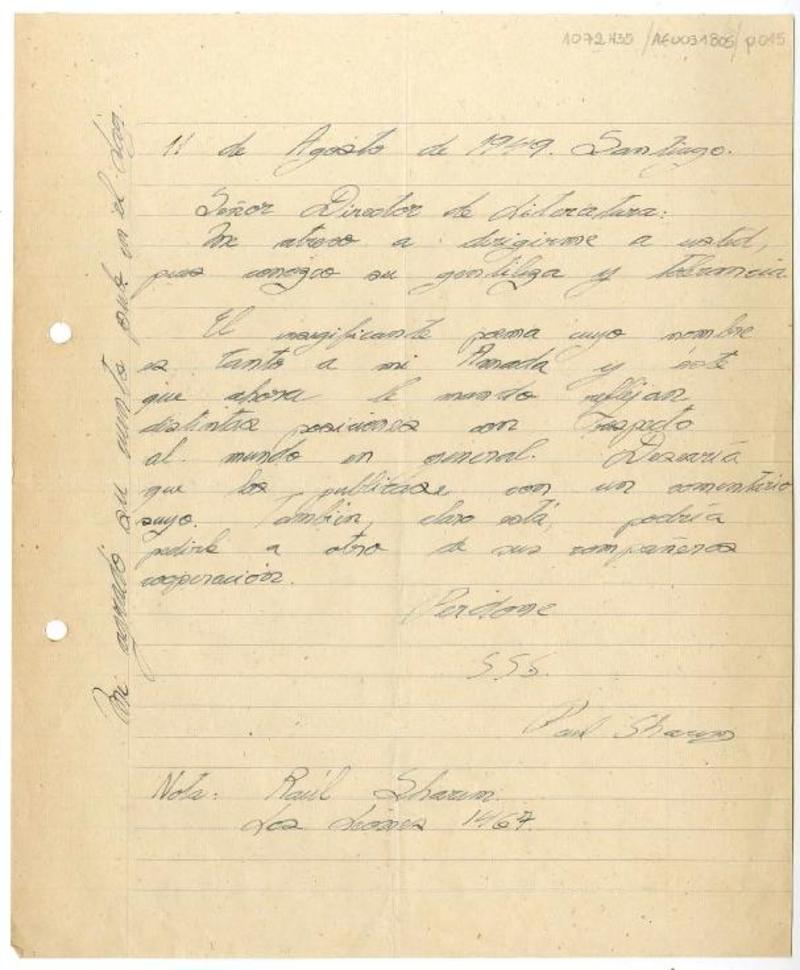 1072435 /AEU031805/ p015
11 de Agosto de 1949. Santiago.
Señor Director de Literatura:
Me atrevo a dirigirme a usted,
pues conozco su gentileza y tolerancia.
El insignificante poema cuyo nombre
es Canto a mi Amada y éste
que ahora le mando reflejan
distintas posiciones con respecto
al mundo en general. Desearía
que los publicase con un comentario
suyo. También, claro está, podría
pedirle a otro de sus compañeros
cooperación.
Perdone
S.S.S.
Raúl Sharim
Nota: Raúl Sharim.
Los Leones 1467.
Me agradó su cuento